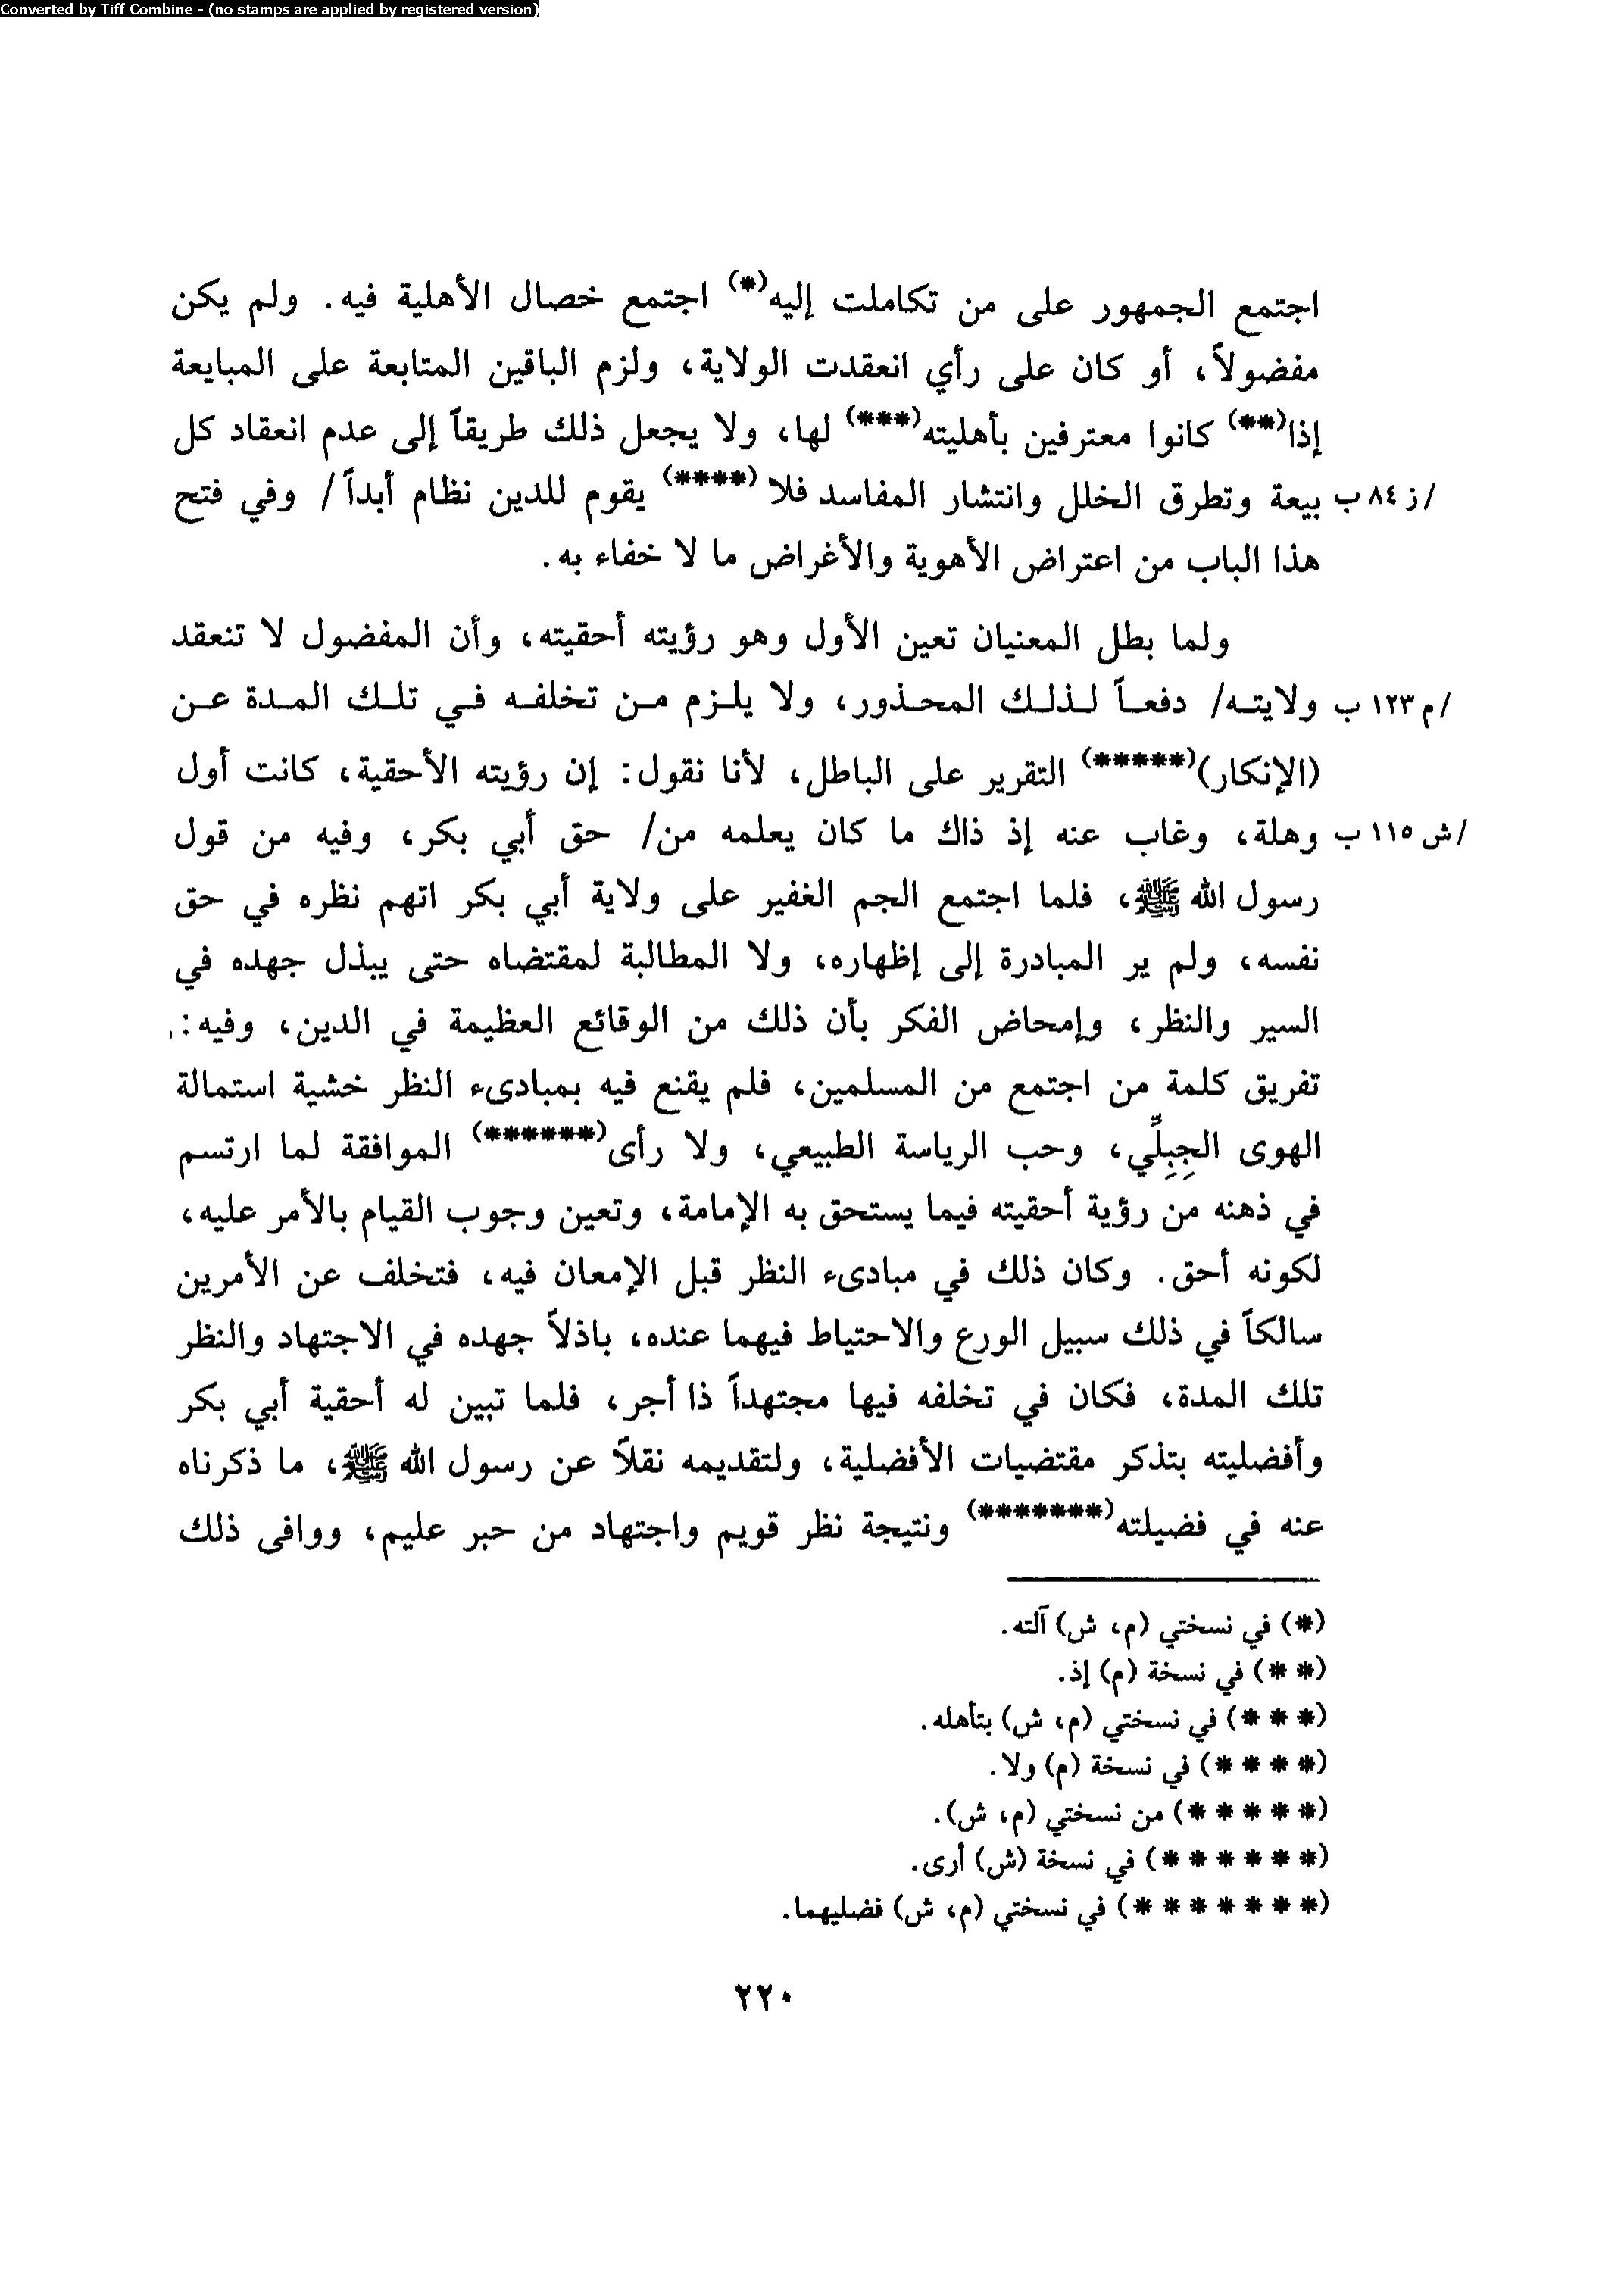 Converted by Tiff Combine - (no stamps are applied by registered version)
اجتمع الجمهور على من تكاملت إليه(*) اجتمع خصال الأهلية فيه. ولم يكن
مفضولاً، أو كان على رأي انعقدت الولاية، ولزم الباقين المتابعة على المبايعة
إذا(**) كانوا معترفين بأهليته(***) لها، ولا يجعل ذلك طريقاً إلى عدم انعقاد كل
/ز ٨٤ ب بيعة وتطرق الخلل وانتشار المفاسد فلا(****) يقوم للدين نظام أبداً/ وفي فتح
هذا الباب من اعتراض الأهوية والأغراض ما لا خفاء به.
ولما بطل المعنيان تعين الأول وهو رؤيته أحقيته، وأن المفضول لا تنعقد
/م ١٢٣ ب ولايته/ دفعاً لذلك المحذور، ولا يلزم من تخلفه في تلك المدة عن
(الإنكار)(*****) التقرير على الباطل، لأنا نقول: إن رؤيته الأحقية، كانت أول
/ش ١١٥ ب وهلة، وغاب عنه إذ ذاك ما كان يعلمه من/ حق أبي بكر، وفيه من قول
رسول الله ﷺ، فلما اجتمع الجم الغفير على ولاية أبي بكر اتهم نظره في حق
نفسه، ولم ير المبادرة إلى إظهاره، ولا المطالبة لمقتضاه حتى يبذل جهده في
السير والنظر، وإمحاض الفكر بأن ذلك من الوقائع العظيمة في الدين، وفيه:
تفريق كلمة من اجتمع من المسلمين، فلم يقنع فيه بمبادىء النظر خشية استمالة
الهوى الجِبِلِّي، وحب الرياسة الطبيعي، ولا رأى(******) الموافقة لما ارتسم
في ذهنه من رؤية أحقيته فيما يستحق به الإمامة، وتعين وجوب القيام بالأمر عليه،
لكونه أحق. وكان ذلك في مبادىء النظر قبل الإمعان فيه، فتخلف عن الأمرين
سالكاً في ذلك سبيل الورع والاحتياط فيهما عنده، باذلاً جهده في الاجتهاد والنظر
تلك المدة، فكان في تخلفه فيها مجتهداً ذا أجر، فلما تبين له أحقية أبي بكر
وأفضليته بتذكر مقتضيات الأفضلية، ولتقديمه نقلاً عن رسول الله ﷺ، ما ذكرناه
عنه في فضيلته(*******) ونتيجة نظر قويم واجتهاد من حبر عليم، ووافى ذلك
(*) في نسختي (م، ش) آلته.
(* *) في نسخة (م) إذ.
(* * *) في نسختي (م، ش) بتأهله.
(* * * *) في نسخة (م) ولا.
(* * * * *) من نسختي (م، ش).
(* * * * * *) في نسخة (ش) أرى.
(* * * * * * *) في نسختي (م، ش) فضليهما.
٢٢٠